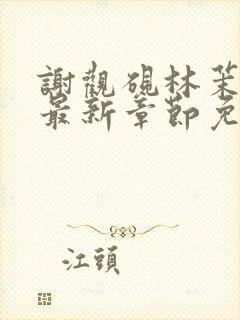 謝觀硯林茉
最新章節免
江頭